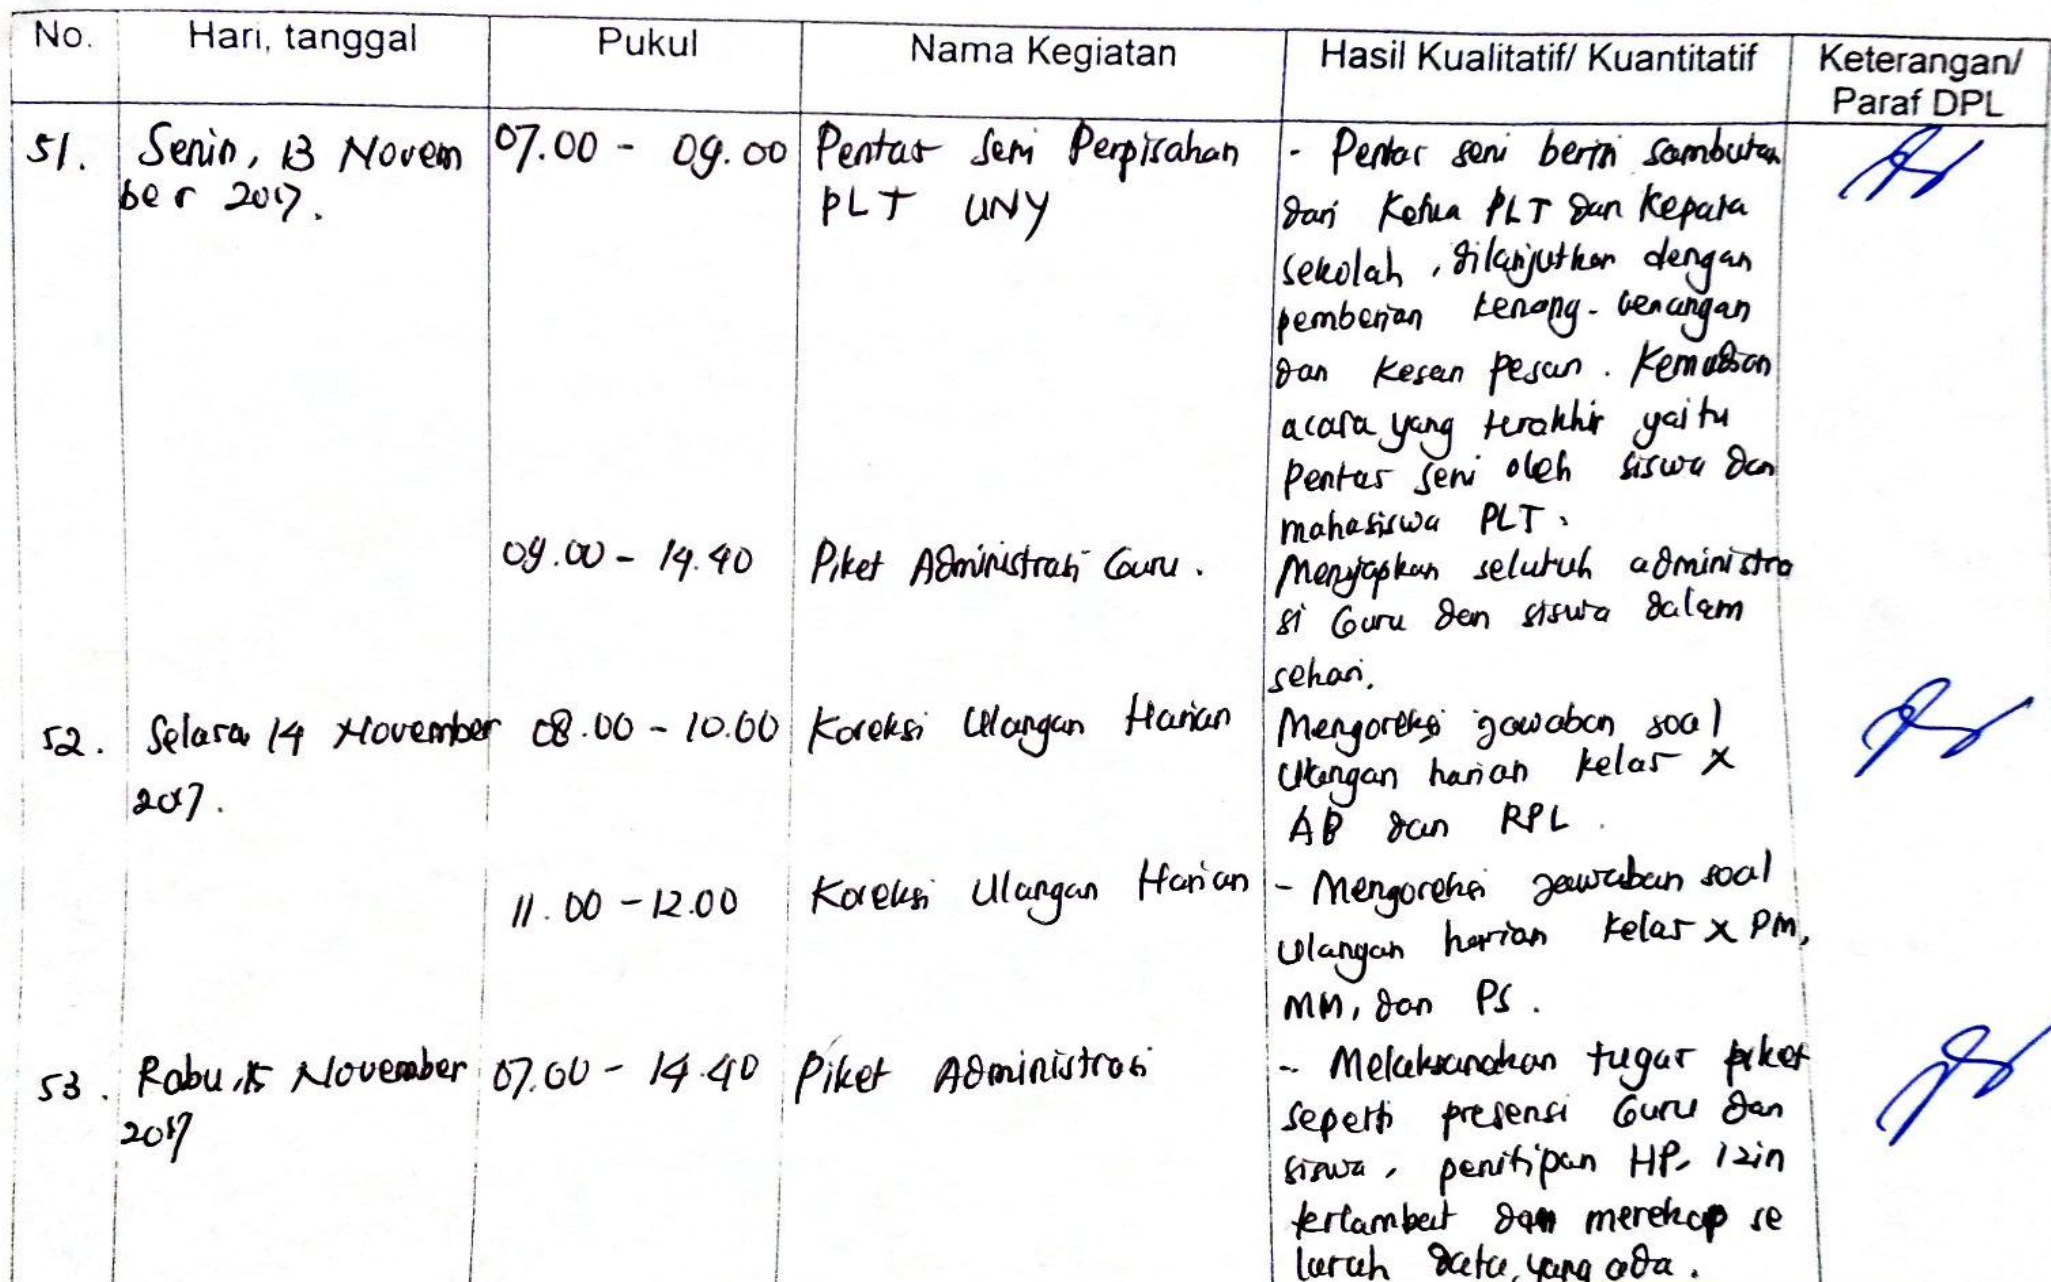 No. Hari, tanggal Pukul Nama Kegiatan Hasil Kualitatif/ Kuantitatif Keterangan/
Paraf DPL
51. Senin, 13 Novem 07.00 - 09.00 Pentas Seni Perpisahan - Pentas seni berisi sambutan
ber 2017. PLT UNY dari Ketua PLT dan Kepala
sekolah, dilanjutkan dengan
pemberian kenang-kenangan
dan kesan pesan. Kemudian
acara yang terakhir yaitu
Pentas seni oleh siswa dan
mahasiswa PLT.
09.00 - 14.40 Piket Administrasi Guru. Menyiapkan seluruh administra
si Guru dan siswa dalam
sehari.
52. Selasa 14 November 08.00 - 10.00 Koreksi Ulangan Harian Mengoreksi jawaban soal
2017. Ulangan harian kelas X
AP dan RPL.
11.00 - 12.00 Koreksi Ulangan Harian - Mengoreksi jawaban soal
Ulangan harian kelas X PM,
MM, dan PS.
53. Rabu, 15 November 07.00 - 14.40 Piket Administrasi - Melaksanakan tugas piket
2017 seperti presensi Guru dan
siswa, penitipan HP, izin
terlambat dan merekap se
luruh data yang ada.